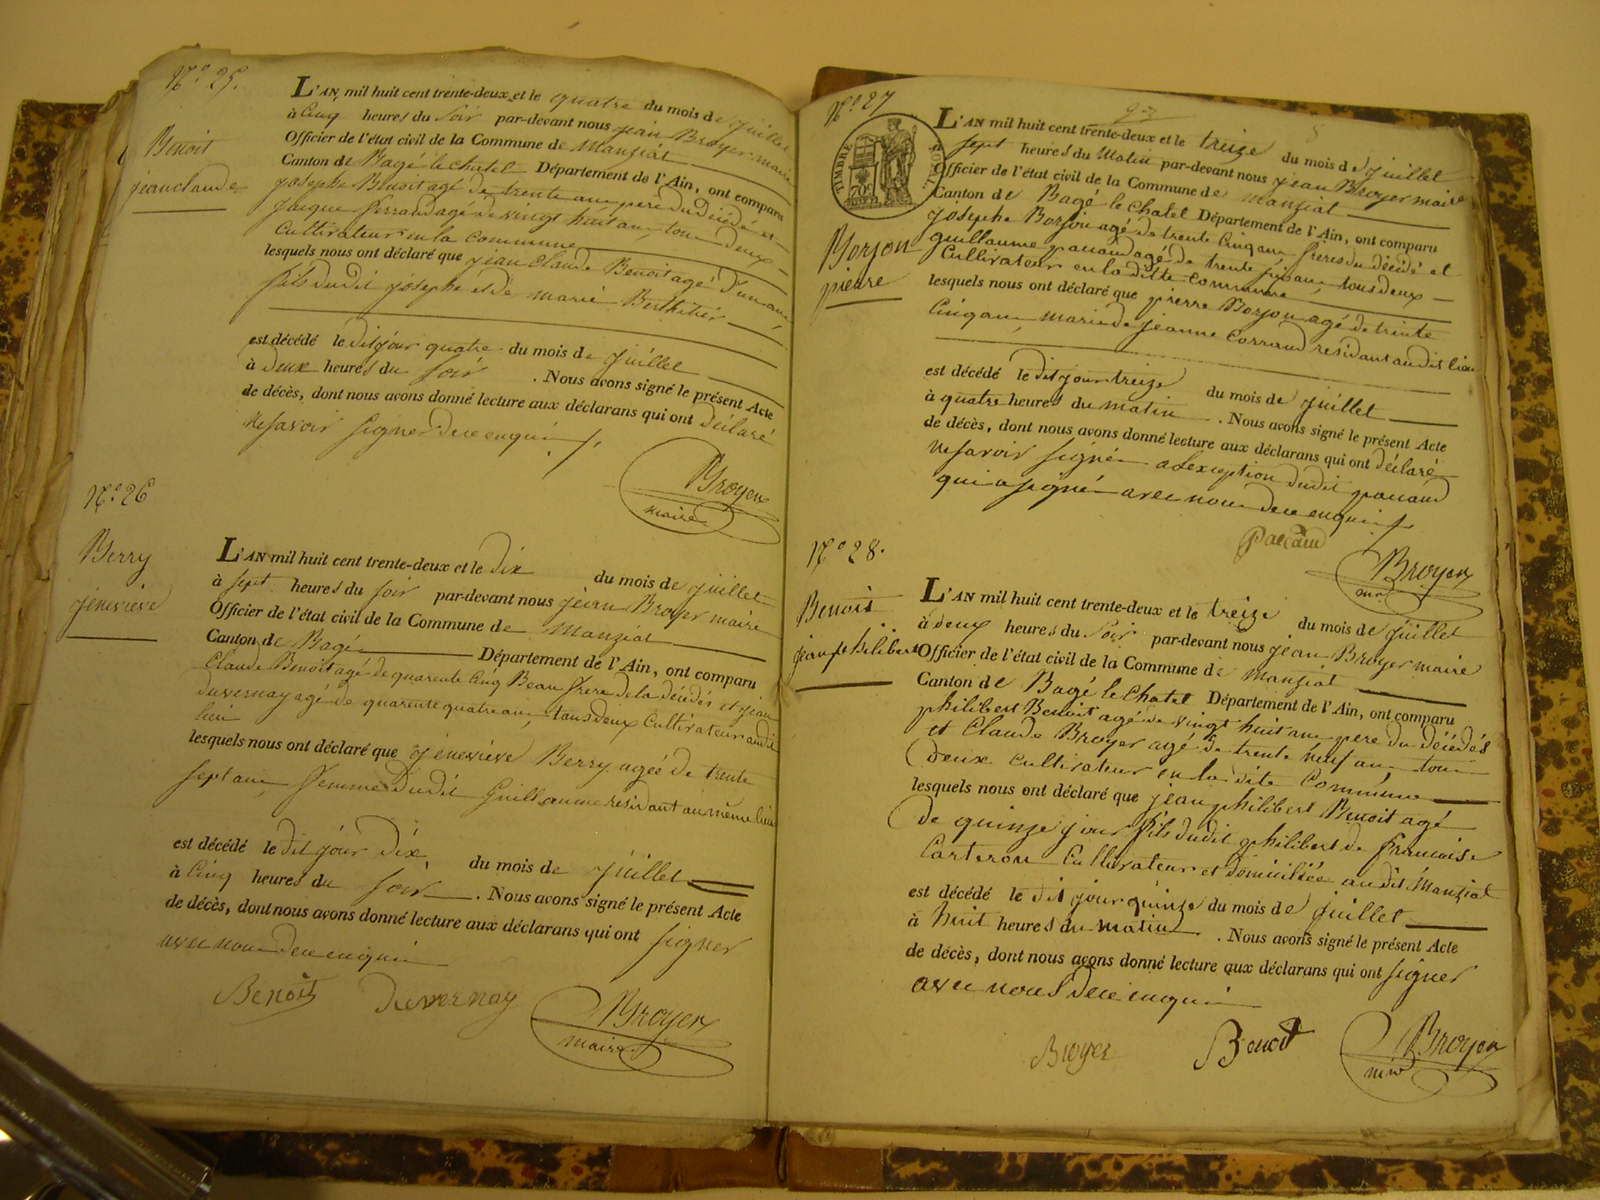 N.° 25.
Benoit
jeanclaude
L'AN mil huit cent trente-deux et le quatre du mois de juillet
à Cinq heures du Soir par-devant nous jean Broyer maire
Officier de l'état civil de la Commune de Manziat
Canton de Bagé le chatel Département de l'Ain, ont comparu
josephe Benoit agé de trente ans pere du décédé et
jacque ferrand agé de vingt huit ans tous deux
Cultivateur en la commune
lesquels nous ont déclaré que jean Claude Benoit agé d'un an
fils dudit josephe et de marie Berthilier
est décédé le dit jour quatre du mois de juillet
à deux heures du soir . Nous avons signé le présent Acte
de décès, dont nous avons donné lecture aux déclarans qui ont déclaré
ne savoir signer de ce enquis
Broyer
maire
N.° 26
Berry
jéneviève
L'AN mil huit cent trente-deux et le dix du mois de juillet
à sept heures du soir par-devant nous jean Broyer maire
Officier de l'état civil de la Commune de Manziat
Canton de Bagé Département de l'Ain, ont comparu
Claude Benoit agé de quarente cinq Beau frere de la décédés et jean
duvernay agé de quarente quatre ans, tous deux Cultivateur audit
lieu
lesquels nous ont déclaré que jéneviève Berry agée de trente
sept ans, femme dudit Guillaume residant au même lieu
est décédé le dit jour dix du mois de juillet
à Cinq heures du soir . Nous avons signé le présent Acte
de décès, dont nous avons donné lecture aux déclarans qui ont signer
avec nous de ce enquis
Benoit Duvernay Broyer
maire
N.° 27
TIMBRE ROYAL
70c
Borjon
pierre
L'AN mil huit cent trente-deux et le treize du mois de juillet
sept heures du Matin par-devant nous jean Broyer maire
Officier de l'état civil de la Commune de manziat
Canton de Bagé le chatel Département de l'Ain, ont comparu
josephe Borjon agé de trente cinq ans frères du décédé et
guillaume pacaud agé de trente six ans, tous deux
Cultivateur en la ditte commune
lesquels nous ont déclaré que pierre Borjon agé de trente
Cinq ans, marie de jeanne Corraud residant audit lieu
est décédé le dit jour treize du mois de juillet
à quatre heures du matin . Nous avons signé le présent Acte
de décès, dont nous avons donné lecture aux déclarans qui ont déclaré
ne savoir signée a lexception dudit pacaud
qui a signée avec nous de ce enquis
Paccaud
Broyer
mre
N.° 28.
Benoit
jeanphilibert
L'AN mil huit cent trente-deux et le treize du mois de juillet
à deux heures du Soir par-devant nous jean Broyer maire
Officier de l'état civil de la Commune de Manziat
Canton de Bagé le chatel Département de l'Ain, ont comparu
philibert Benoit agé de vingt huit ans pere du décédés
et Claude Broyer agé de trente neuf ans tous
deux cultivateur en la dite Commune
lesquels nous ont déclaré que jean philibert Benoit agé
de quinze jour fils dudit philibert de francoise
Carteron Cultivateur et domiciliée audit Manziat
est décédé le dit jour quinze du mois de juillet
à huit heures du matin . Nous avons signé le présent Acte
de décès, dont nous avons donné lecture aux déclarans qui ont signer
avec nous de ce enquis
Broyer Benoit Broyer
mre